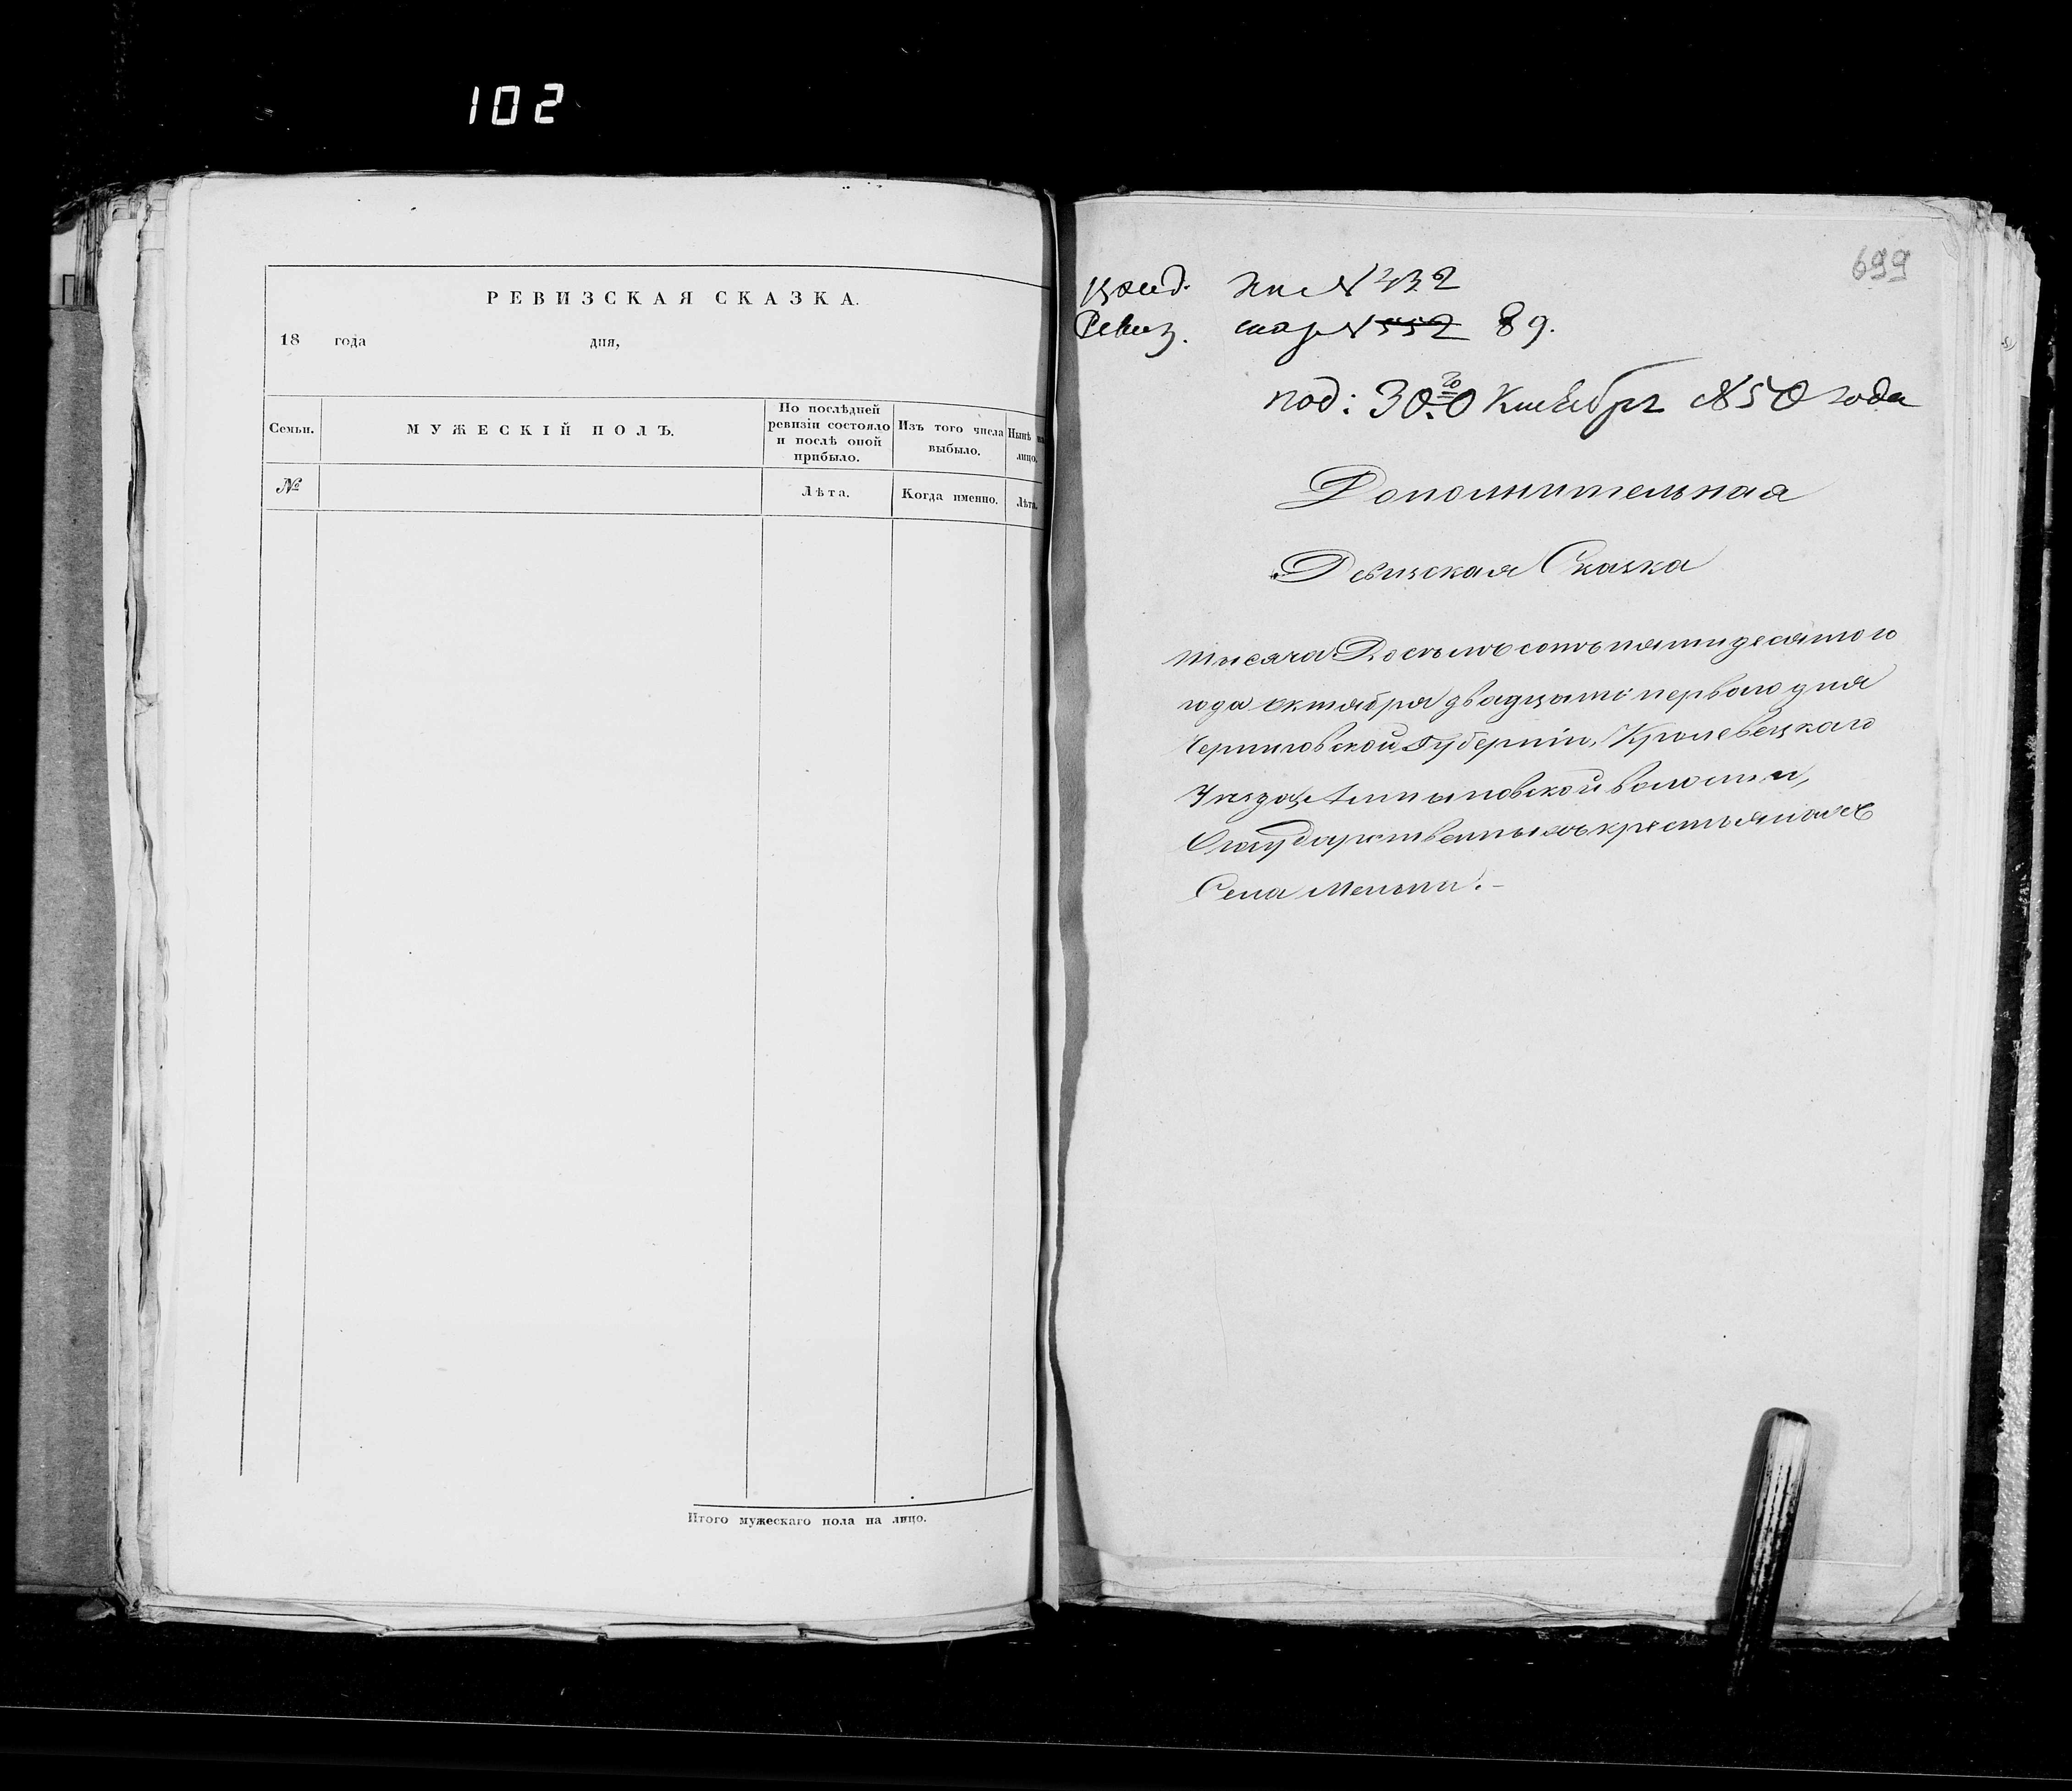 102
РЕВИЗСКАЯ СКАЗКА.
18 года дня,
Семьи.
МУЖЕСКІЙ ПОЛЪ.
По послѣдней
ревизіи состояло
и послѣ оной
прибыло.
Изъ того числа
выбыло.
Нынѣ на
лицо.
№
Лѣта.
Когда именно.
Лѣта.
Итого мужескаго пола на лицо.
699
№ 432
Ревиз. сказ № 552 89.
под: 30го Октября 1850 года
Дополнительная
Ревизская Сказка
тысяча Восемъ сотъ пятидесятого
года октября двадцать первого дня
Черниговской Губерніи, Кролевецкаго
Уезда, волости,
О государственныхъ крестьянахъ
Села Мельни.-